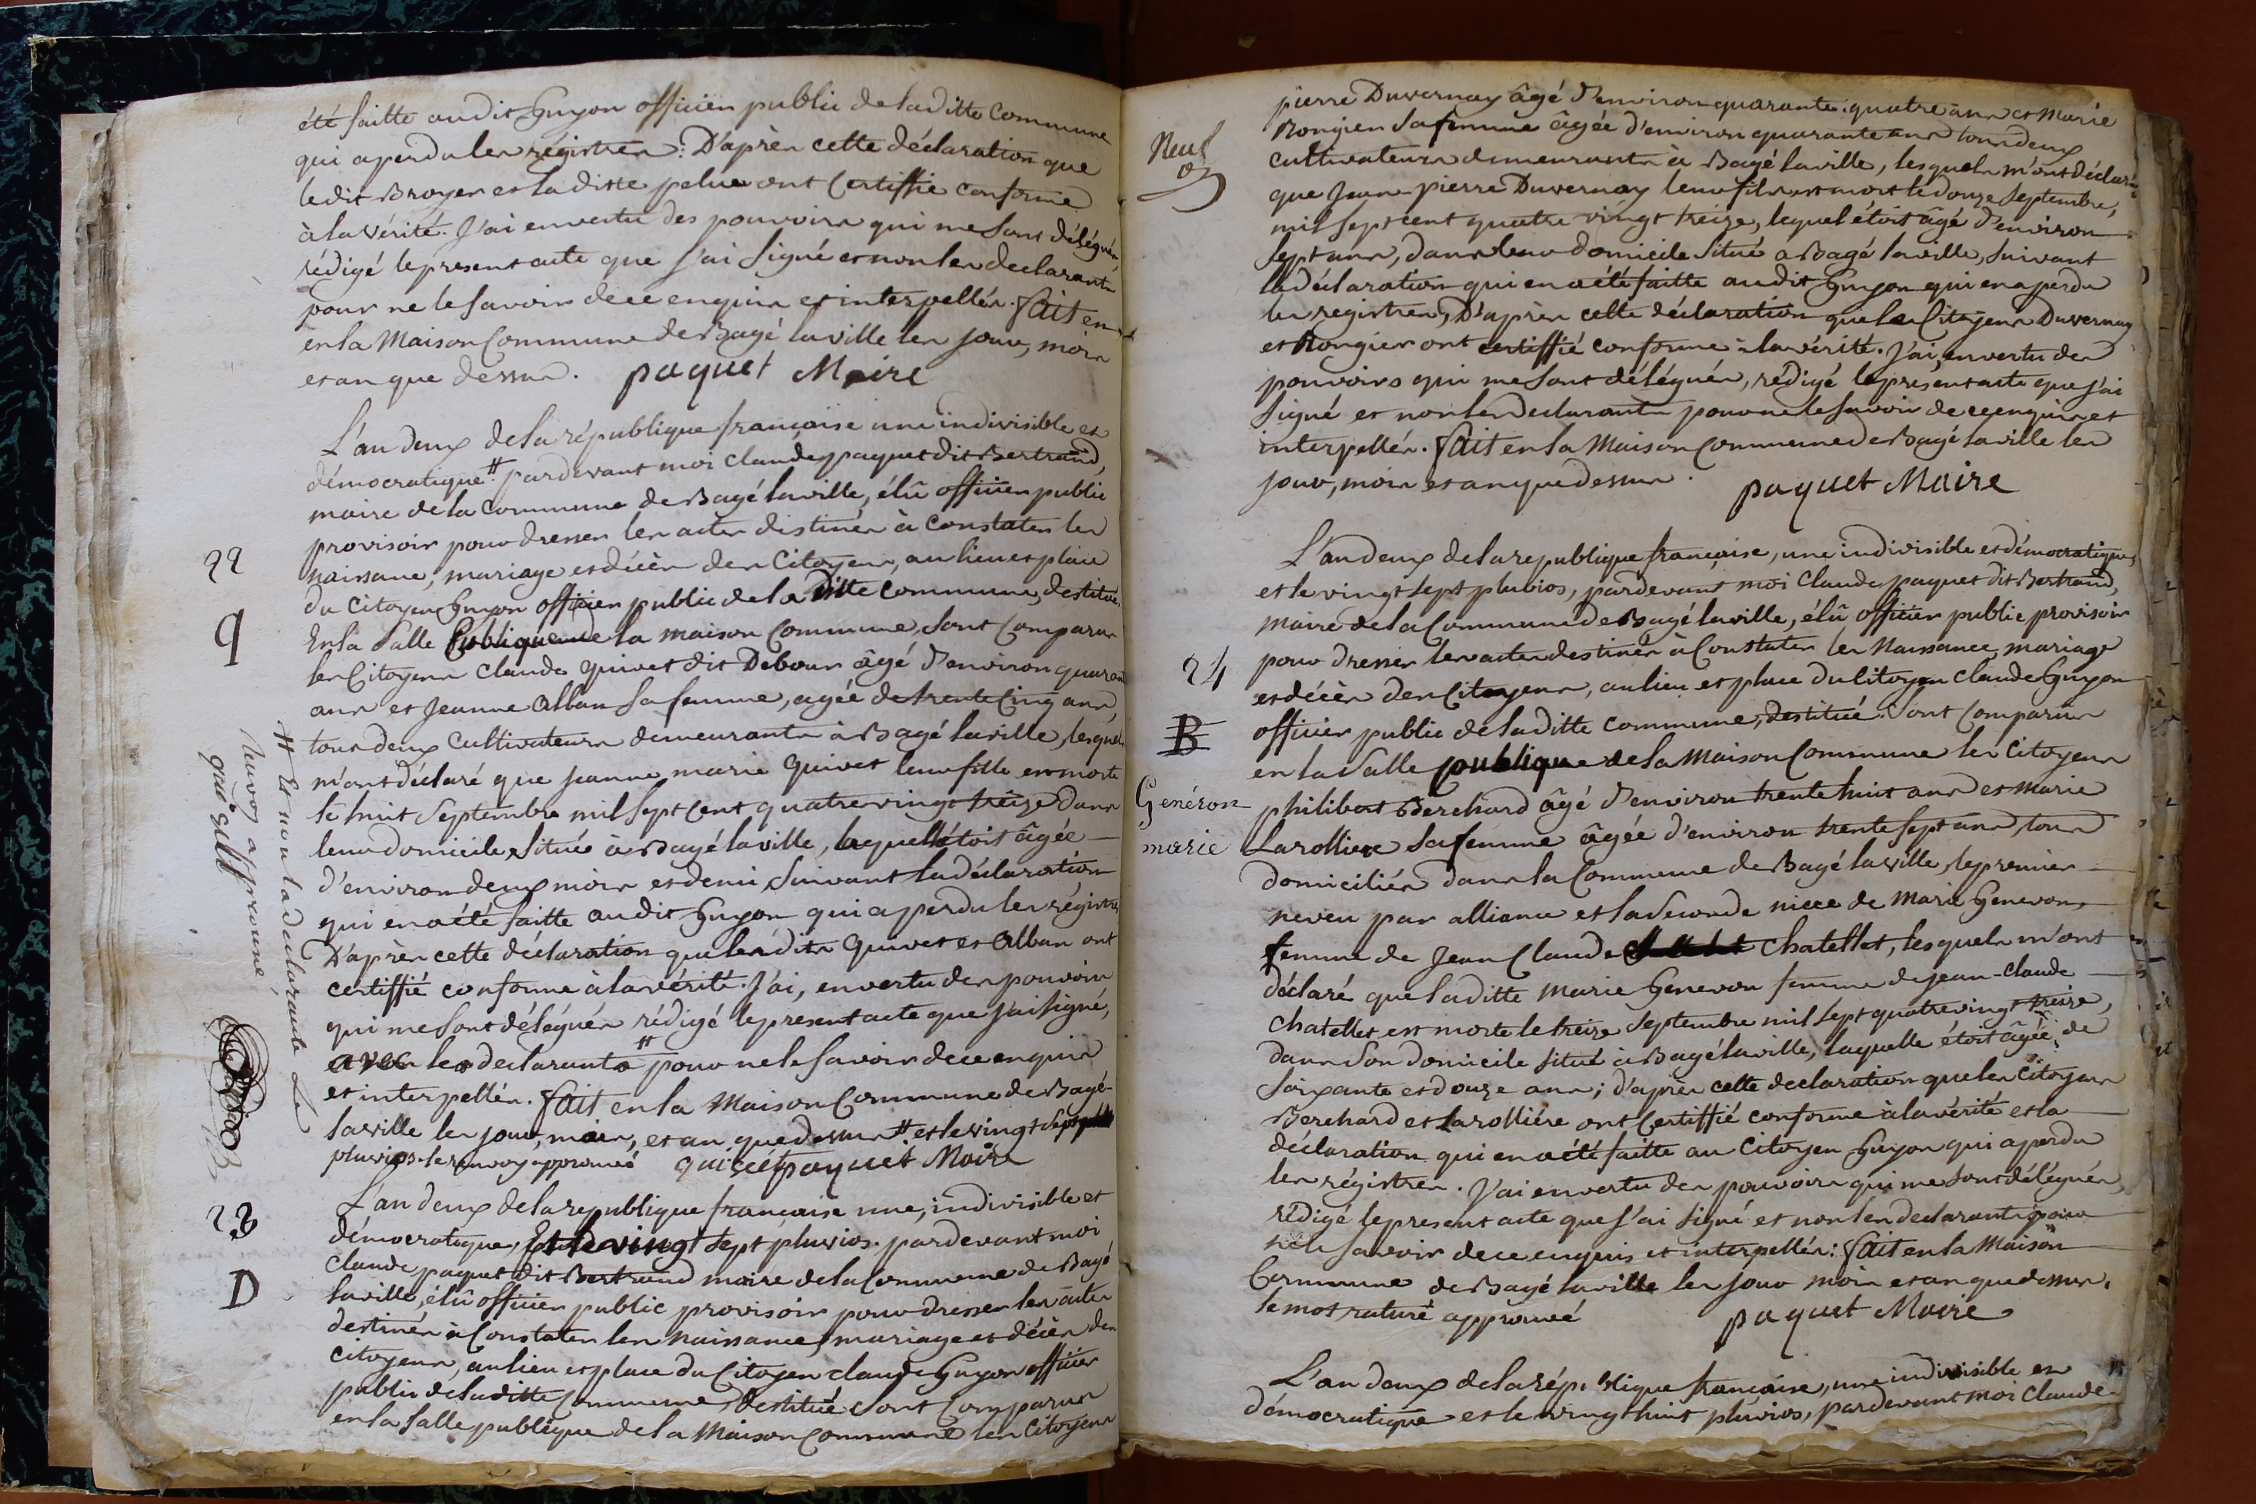 été faitte audit Guyon officier public de laditte commune
qui a perdu les régistres. D'après cette déclaration que
ledit Broyer et laditte pelue ont Certiffié conforme
à la vérité. J'ai en vertu des pouvoirs qui me sont délégués
rédigé le present acte que j'ai signé et non les declarants
pour ne le savoir de ce enquis et interpellés. fait en
en la Maison Commune de Bagé laville les jour, mois
et an que dessus. paquet Maire
L'an deux de la république françoise une indivisible et
démocratique # pardevant moi claude paquet dit Bertrand,
maire de la commune de Bagé laville, élû officier public
provisoir pour dresser les actes distinés à constater les
naissance, mariage et décès des Citoyens, au lieu et place
du citoyen Guyon officier public de la ditte commune, destitué.
22
En la salle publique de la maison Commune, sont comparus
9
les Citoyens claude quivet dit Debour âgé d'environ quarante
ans et Jeanne alban sa femme, agée de trente cinq ans,
tous deux cultivateurs demeurants à Bagé laville, lesquels
m'ont déclaré que jeanne marie quivet leur fille est morte
le huit septembre mil sept cent quatrevingt treize dans
leur domicile situé à Bagé laville, laquelle étoit âgée
d'environ deux mois et demi, suivant la déclaration
qui en a été faitte audit Guyon qui a perdu les régistres
D'après cette déclaration que lesdits quivet et alban ont
certiffié conforme à la vérité. J'ai, en vertu des pouvoirs
qui me sont délégués rédigé le present acte que j'ai signé,
avec les declarants # pour ne le savoir de ce enquis
et interpellés. fait en la Maison Commune de Bagé
laville les jour, mois, et an que dessus # et le vingt sept
pluvios. le renvoy approuvé quivet paquet Maire
# Et non la declarante le
renvoy approuvé,
quivet
23
L'an deux de la republique française une, indivisible et
démocratique, Et le vingt sept pluvios. pardevant moi
claude paquet dit Bertrand maire de la Commune de Bagé
D
laville, élû officier public provisoir pour dresser les actes
destinés à Constater les naissances, mariage et décès des
citoyens, au lieu et place du Citoyen claude Guyon officier
public de laditte Commune, destitué. sont Comparus
en la salle publique de la Maison Commune les Citoyens
Neuf
pierre Duvernay âgé d'environ quarante quatre ans et Marie
Rongier sa femme âgée d'environ quarante ans tous deux
cultivateurs demeurants à Bagé laville, lesquels m'ont déclaré
que Jean pierre Duvernay leur fils est mort le douze septembre,
mil sept cent quatre vingt treize, lequel étoit âgé d'environ
sept ans, dans leur domicile situé a Bagé laville, suivant
la déclaration qui en a été faitte audit Guyon qui en a perdu
les registres, D'après cette déclaration que les Citoyens Duvernay
et Rongier ont certiffié conforme à la vérité. J'ai, en vertu des
pouvoirs qui me sont délégués, rédigé le present acte que j'ai
signé et non les declarants pour ne le savoir de ce enquis et
interpellés. fait en la Maison Commune de Bagé laville les
jour, mois et an que dessus. paquet Maire
L'an deux de la republique française, une indivisible et démocratique,
et le vingt sept pluvios, pardevant moi claude paquet dit Bertrand,
maire de la Commune de Bagé laville, élû officier public provisoir
24
pour dresser les actes destinés à Constater les Naissance, mariage
et décès des Citoyens, au lieu et place du Citoyen claude Guyon
B
officier public de laditte commune, destitué. sont comparus
en la salle publique de la Maison Commune les Citoyens
Genéron
marie
philibert Berchard âgé d'environ trente huit ans et Marie
Larolliere sa femme âgée d'environ trente sept ans, tous
domiciliés dans la Commune de Bagé laville, le premier
neveu par alliance et la seconde niece de Marie Genevon,
femme de Jean Claude chatellet, lesquels m'ont
déclaré que laditte marie Genevon femme de jean-claude
chatellet, est morte le treize septembre mil sept quatrevingt treize,
dans son domicile situé à Bagé laville, laquelle étoit âgée, de
soixante et douze ans; d'après cette declaration que les citoyens
Berchard et Larolliére ont Certiffié conforme à la vérité et la
déclaration qui en a été faitte au Citoyen Guyon qui a perdu
les régistres. J'ai en vertu des pouvoirs qui me sont délégués,
rédigé le present acte que j'ai signé et non les declarants pour
ne le savoir de ce enquis et interpellés: fait en la Maison
Commune de Bagé laville les jour mois et an que dessus.
le mot raturé approuvé paquet Maire
L'an deux de la république française, une indivisible et
démocratique et le vingt huit pluvios, pardevant moi Claude